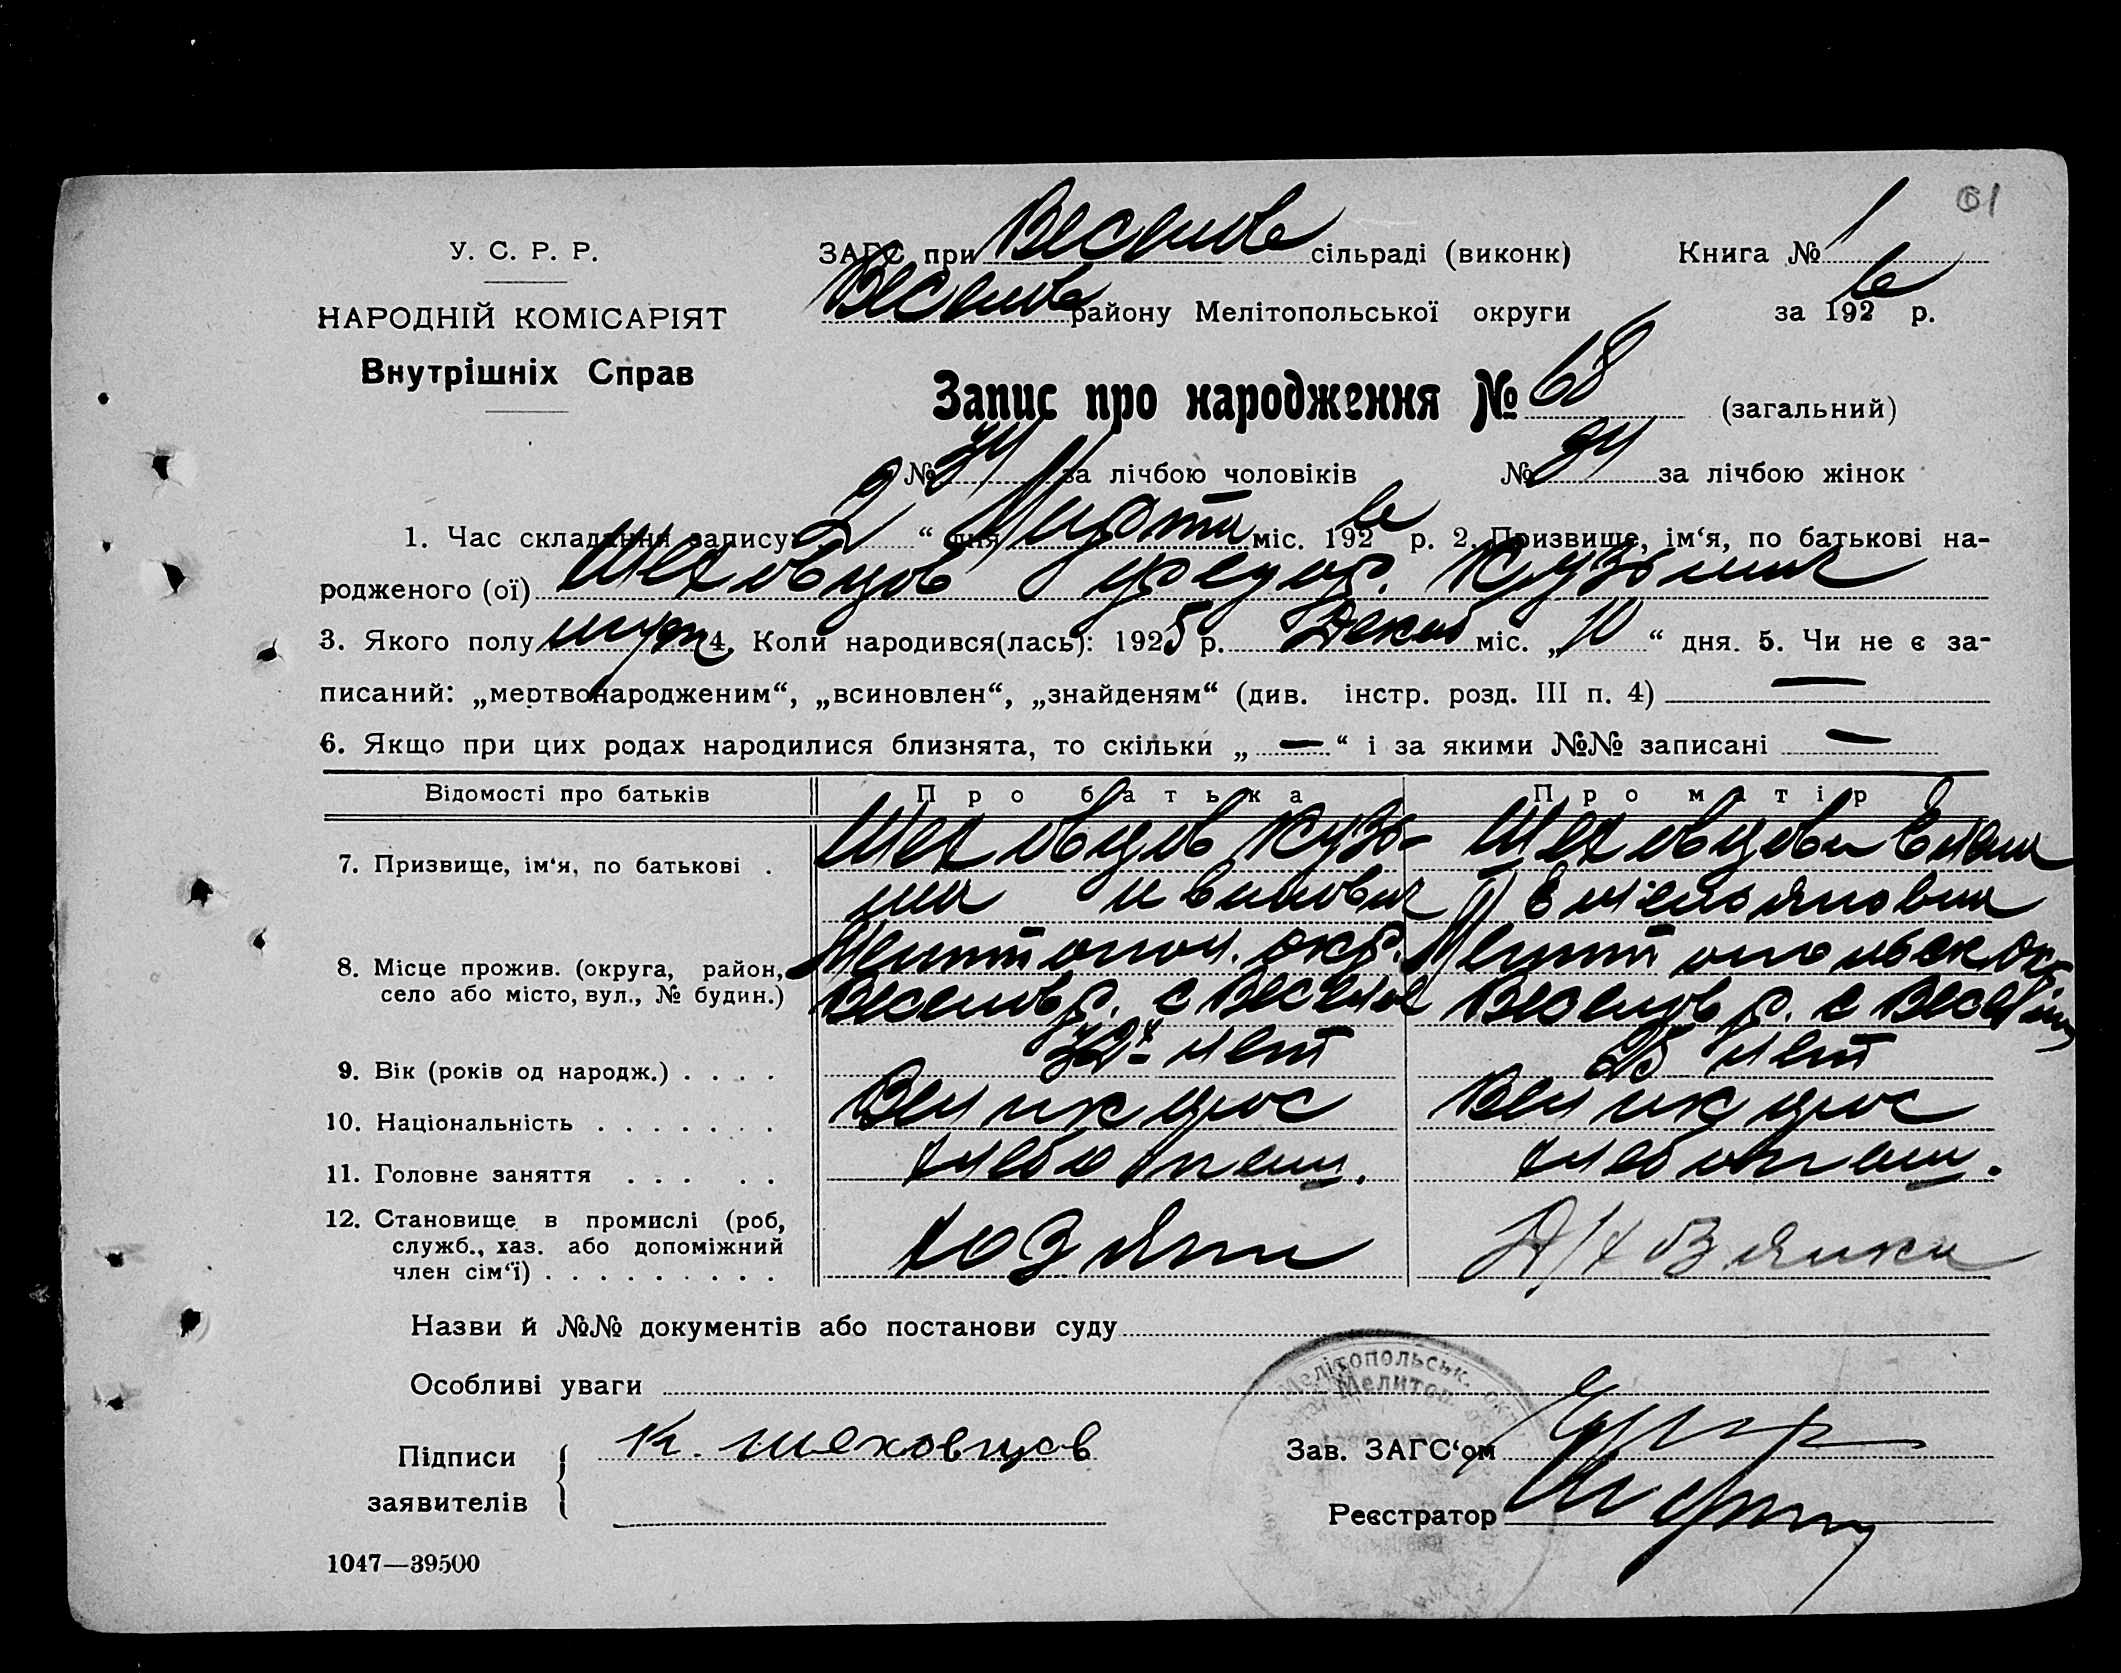 61
У. С. Р. Р.
НАРОДНІЙ КОМІСАРІЯТ
Внутрішніх Справ
ЗАГС при Веселов сільраді (виконк) Книга № 1
Веселов району Мелітопольської округи за 1926 р.
Запис про народження № 68 (загальний)
№ 34 за лічбою чоловіків № 34 за лічбою жінок
1. Час складання запису: 2 “ дня Марта міс. 1926 р. 2. Призвище, ім‘я, по батькові на-
родженого (ої) Шеховцов Федор. Кузьмич
3. Якого полу муж 4. Коли народився(лась): 1925 р. Декаб міс. „ 10 “ дня. 5. Чи не є за-
писаний: „мертвонародженим“, „всиновлен“, „знайденям“ (див. інстр. розд. III п. 4) —
6. Якщо при цих родах народилися близнята, то скільки „ — “ і за якими №№ записані —
Відомості про батьків Про батька Про матір
7. Призвище, ім‘я, по батькові . Шеховцов Кузь- Шеховцова Елена
ма Иванович Емельяновна
8. Місце прожив. (округа, район, Мелитопол. окр. Мелитопольск окр
село або місто, вул., № будин.) Веселов р. с Веселое Веселов р. с
9. Вік (років од народж.) . . . . лет 25 лет
10. Національність . . . . . . . Великорос Великорос
11. Головне заняття . . . . . хлебопаш. хлебопаш.
12. Становище в промислі (роб,
служб., хаз. або допоміжний хозяин
член сім‘ї) . . . . . . . . .
Назви й №№ документів або постанови суду
Особливі уваги
Мелітопольськ. окр
Мелитоп.
Підписи
заявителів
К. шеховцов
Зав. ЗАГС‘ом
Реєстратор
1047—39500